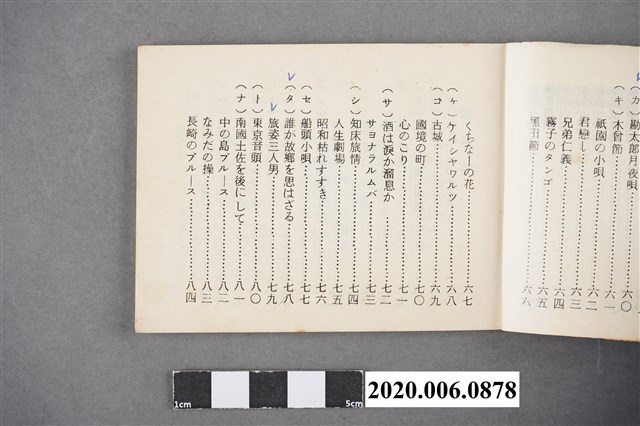 (カ) 勘太郎月夜唄……六〇
(キ) 木曾節……六一
祇園の小唄……六二
君戀し……六三
兄弟仁義……六四
霧子のタンゴ……六五
黑田節……六六
くちなーの花……六七
(ケ) ケイシャワルツ……六八
(コ) 古城……六九
國境の町……七〇
心のこり……七一
(サ) 酒は淚か溜息か……七二
サヨナラルムバ……七三
(シ) 知床旅情……七四
人生劇場……七五
昭和枯れすすき……七六
(セ) 船頭小唄……七七
(タ) 誰が故鄕を思はざる……七八
旅姿三人男……七九
(ト) 東京音頭……八〇
(ナ) 南國土佐を後にして……八一
中の島ブルース……八二
なみだの操……八三
長崎のブルース……八四
1cm 5cm
2020.006.0878